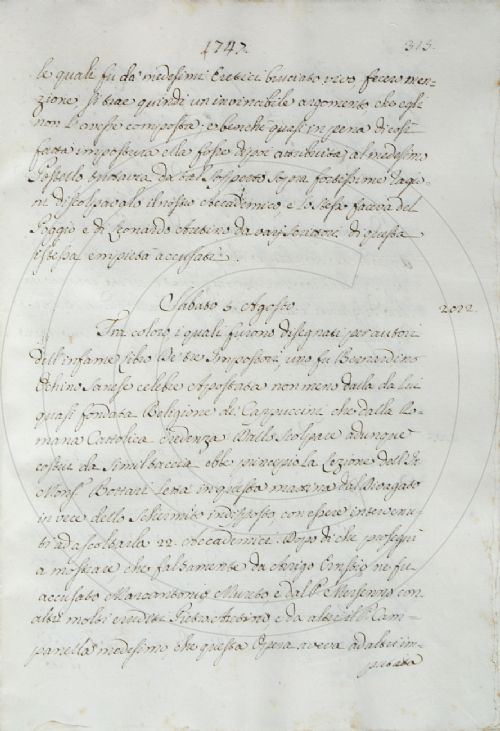 1747.
315.
le quali fu da medesimi Eretici bruciato vivo fecero men-
zione, si trae quindi un invincibile argomento che egli
non l'avesse composta; e benchè quasi in pena di così
fatta impostura ella fosse dipoi attribuita al medesimo
Postello tuttavia da tal sospetto sopra fortissime ragio-
ni discolpavalo il nostro Accademico e lo stesso faceva del
Poggio e di Leonardo Aretino da varj Scrittori di questa
istessa empietà accusati.
Sabato 5. Agosto.
2022.
Tra coloro i quali furono disegnati per autori
dell'infame libro De tre Impostori uno fu Bernardino
Ochino Sanese celebre Apostata non meno dalla da lui
quasi fondata Religione de' Cappuccini che dalla Ro-
mana Cattolica credenza. Dallo scolpare adunque
costui da simil taccia ebbe principio la Lezione del
Mons.r Bottari letta in questa mattina dal
in vece dello Schermito indisposto, con essere intervenu-
ti ad ascoltarla 22. Accademici. Dopo di che proseguì
a mostrare che falsamente da Arrigo Ernstio ne fu
accusato Marcantonio Mureto e dal P. Mersenno con
altri molti eruditi Pietro Aretino e da altri il P. Cam-
panella medesimo, che questa Opera aveva ad altri im-
putata